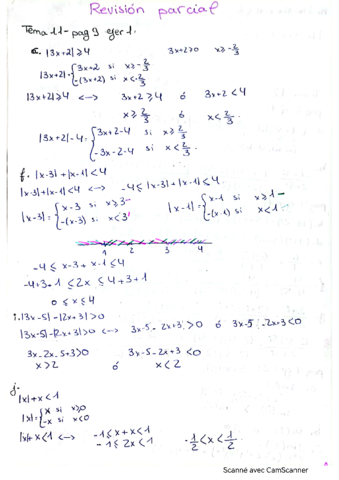 Revisión parcial
Tema 11 - pag 9 ejer 1.
c. |3x+2| ≥ 4    3x+2>0    x ≥ -2/3
|3x+2| = { 3x+2 si x ≥ -2/3
-(3x+2) si x < -2/3
|3x+2| ≥ 4 <-> 3x+2 ≥ 4 ó 3x+2 < 4
x ≥ 2/3 ó x < 2/3.
|3x+2| - 4 = { 3x+2-4 si x ≥ 2/3
-3x-2-4 si x < 2/3.
f. |x-3|+|x-1| < 4
|x-3|+|x-1| < 4 <-> -4 ≤ |x-3|+|x-1| ≤ 4
|x-3| = { x-3 si x ≥ 3    |x-1| = { x-1 si x ≥ 1
-(x-3) si x < 3    -(x-1) si x < 1
1 2 3 4
-4 ≤ x-3+x-1 ≤ 4
-4+3+1 ≤ 2x ≤ 4+3+1
0 ≤ x ≤ 4
i. |3x-5|-|2x+3| > 0
|3x-5|-|2x+3| > 0 <-> 3x-5-2x+3 > 0 ó 3x-5-2x+3 < 0
3x-2x-5+3 > 0    3x-5-2x+3 < 0
x > 2    ó    x < 2
j.
|x|+x < 1
|x| = { x si x ≥ 0
-x si x < 0
|x|+x < 1 <->    -1 ≤ x+x < 1    -1/2 < x < 1/2
-1 ≤ 2x < 1
Scanné avec CamScanner